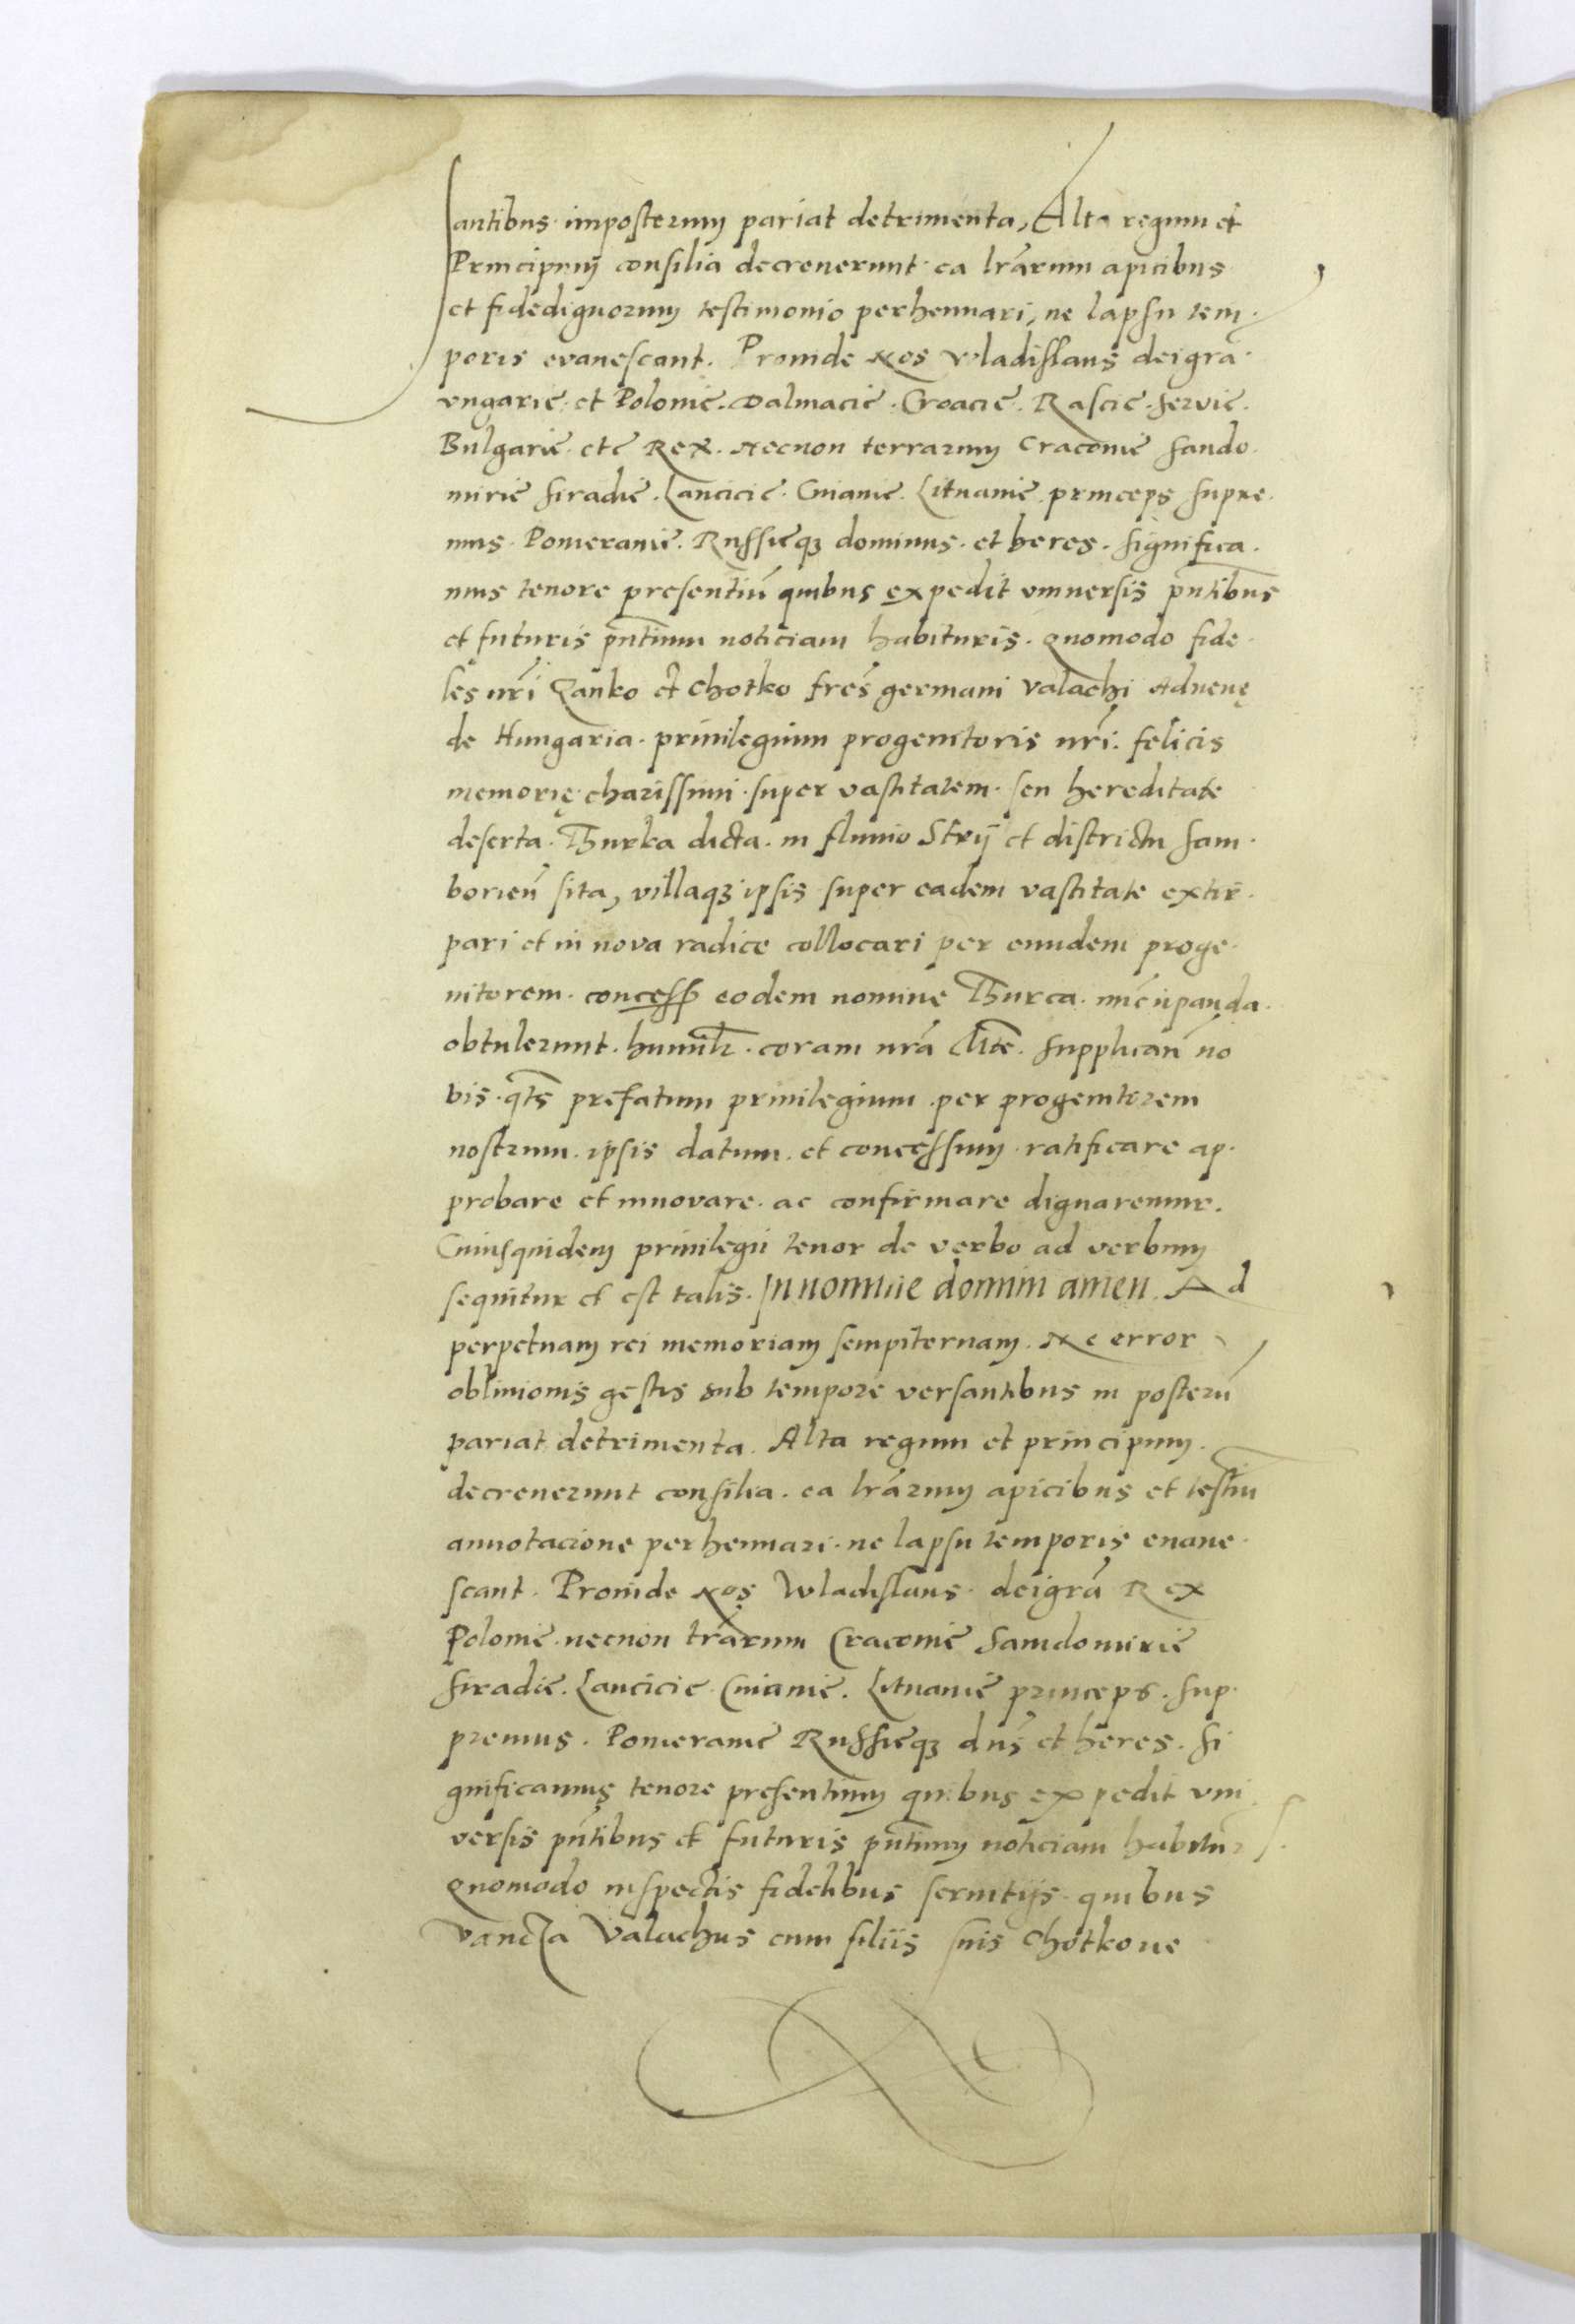 santibus imposterum pariat detrimenta, Alta regum et
Principum consilia decreuerunt ea lrãrum apicibus
et fidedignorum testimonio perhennari, ne lapsu tem
poris evanescant. Prouide Nos Wladislaus deigrã
vngarie et Polonie. Dalmacie. Croacie. Rascie. Servie.
Bulgarie etc Rex. Necnon terrarum Cracouie Sando
mirie Siradie. Lancicie. Cuiauie. Lituanie princeps supre
mus. Pomeranie. Russieqz dominus et heres. Significa
mus tenore presentiũ quibus expedit vniuersis pñtibus
et futuris pñtium noticiam habituris. Quomodo fide
les nri̇̃ Zanko et Chotko frẽs germani Valachi Aduenę
de Hungaria. priuilegium progenitoris nrĩ. felicis
memorię charissimi. super vastitatem. seu hereditate
deserta. Thurka dicta. in fluuio Strÿ et districtu Sam
borieñ sita, villaqz ipsis super eadem vastitate extir
pari et in nova radice collocari per eundem proge
nitorem. concess̃ eodem nomine Thurca. nũcupanda
obtulerunt. humilr̃. coram nrã Clitẽ. Supplicañ no
bis. qts̃ prefatum priuilegium per progenitorem
nostrum. ipsis datum. et concessum ratificare ap
probare et innovare. ac confirmare dignaremur.
Cuiusquidem priuilegii tenor de verbo ad verbum
sequitur et est talis. In nomine domini amen. Ad
perpetuam rei memoriam sempiternam. Ne error
obliuionis gestis sub tempore versantibus in posterũ
pariat detrimenta. Alta regum et principum.
decreuerunt consilia. ea lrãrum apicibus et testiũ
annotacione perhennari. ne lapsu temporis euane
scant. Prouide Nos Wladislaus deigrã Rex
Polonie necnon trãrum Cracouie Samdomirie
Siradie. Lancicie Cuiauie. Lituanie princeps. Sup
premus. Pomeranie Russieqz dñs et heres. Si
gnificamus tenore presentium quibus expedit vni
versis pñtibus et futuris pñtium noticiam habitur
Quomodo inspectis fidelibus seruitijs quibus
Vancza Valachus cum filiis suis Chotkone